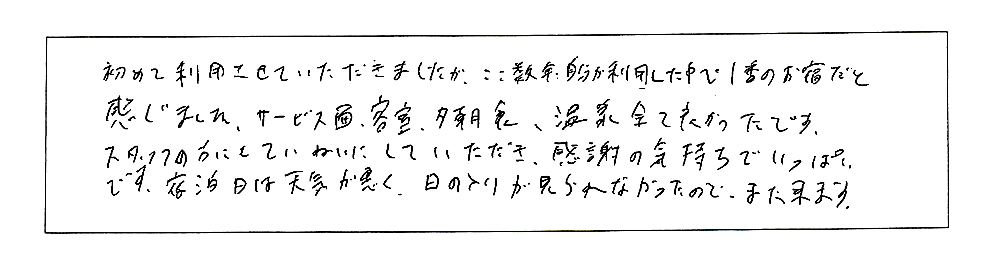 初めて利用させていただきましたが、ここ数年自分が利用した中で1番のお宿だと
感じました、サービス面、客室、夕朝食、温泉全て良かったです、
スタッフの方にもていねいにしていただき、感謝の気持ちでいっぱい
です、宿泊日は天気が悪く、日の入りが見られなかったので、また来ます。